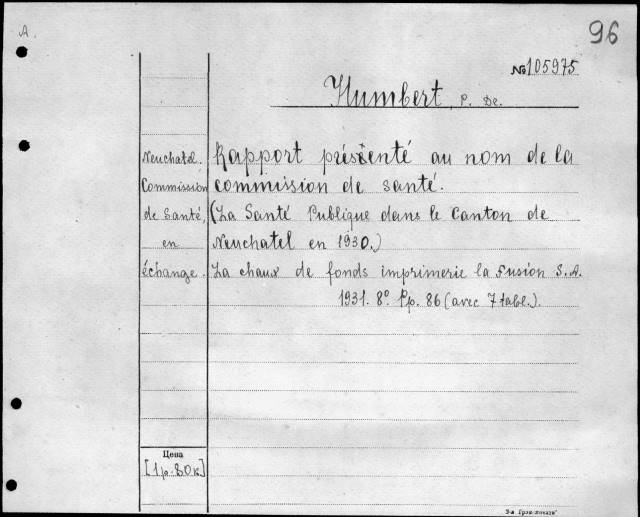 A.
96
№105975
Humbert, P. De.
Neuchatel.
Commission
de Santé,
en
échange.
Rapport présenté au nom de la
commission de santé.
(La Santé Publique dans le Canton de
Neuchatel en 1930.)
La chaux de fonds imprimerie la Fusion S.A.
1931. 8° Pp. 86 (avec 7 tabl.).
Цена
[1 р. 80 к]